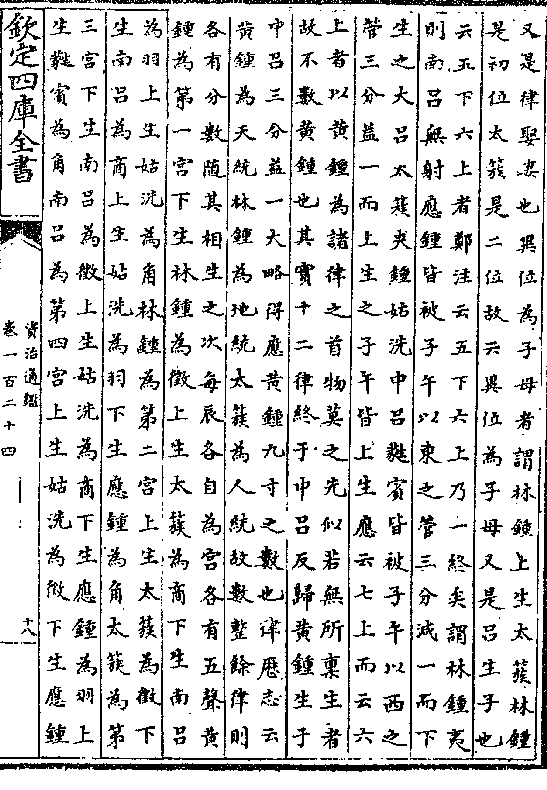 又是律娶妻也異位為子母者謂林鍾上生太蔟林鍾
是初位太蔟是二位故云異位為子母又是呂生子也
云五下六上者鄭注云五下六上乃一終矣謂林鍾夷
則南呂無射應鍾皆被子午以東之管三分減一而下
生之大呂太蔟夾鍾姑洗中呂蕤賓皆被子午以西之
管三分益一而上生之子午皆上生應云七上而云六
上者以黃鍾為諸律之首物莫之先似若無所稟生者
故不數黃鍾也其實十二律終于中呂反歸黃鍾生于
中呂三分益一大略得應黃鍾九寸之數也律厯志云
黃鍾為天統林鍾為地統太蔟為人統故數整餘律則
各有分數隨其相生之次每辰各自為宮各有五聲黃
鍾為第一宮下生林鍾為徵上生太蔟為商下生南呂
為羽上生姑洗為角林鍾為第二宮上生太蔟為徵下
生南呂為商上生姑洗為羽下生應鍾為角太蔟為第
三宮下生南呂為徵上生姑洗為商下生應鍾為羽上
生蕤賓為角南呂為第四宮上生姑洗為徵下生應鍾
欽定四庫全書
資治通鑑
卷一百二十四
十八